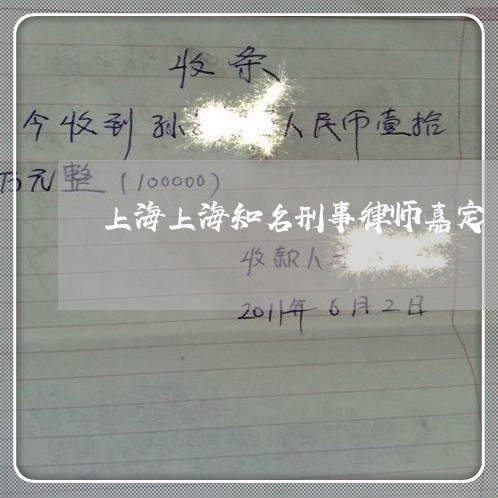 收条
今收到孙 人民币壹拾
万元整(100000)
上海上海知名刑事律师嘉定
收款人
2011年6月2日